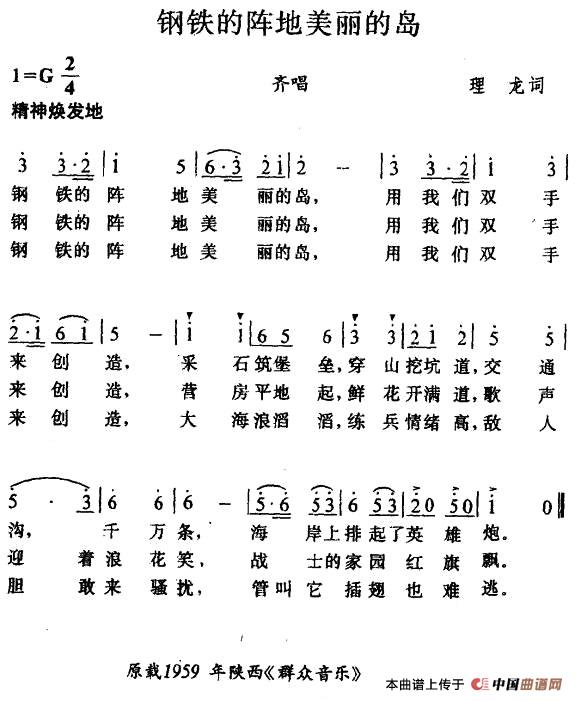 钢铁的阵地美丽的岛
1=G 2/4
齐唱
理 龙词
精神焕发地
3 3·2 | 1 5 | 6·3 21 | 2 – | 3 3·2 | 1 3 |
钢 铁的 阵 地 美 丽的岛, 用 我们双 手
钢 铁的 阵 地 美 丽的岛, 用 我们双 手
钢 铁的 阵 地 美 丽的岛, 用 我们双 手
2·1 6 1 | 5 – | 1 1 | 6 5 6 | 3 3 | 21 2 | 5 5 |
来 创 造, 采 石筑堡 垒,穿 山挖坑 道,交 通
来 创 造, 营 房平地 起,鲜 花开满 道,歌 声
来 创 造, 大 海浪滔 滔,练 兵情绪 高,敌 人
5 · 3 | 6 6 | 6 – | 5·6 53 | 5 53 | 20 50 | 1 0 ‖
沟, 千 万 条, 海 岸上排 起了英 雄 炮。
迎 着 浪 花 笑, 战 士的家 园 红 旗 飘。
胆 敢 来 骚 扰, 管叫 它 插 翅 也 难 逃。
原载1959 年陕西《群众音乐》
本曲谱上传于 中国曲谱网